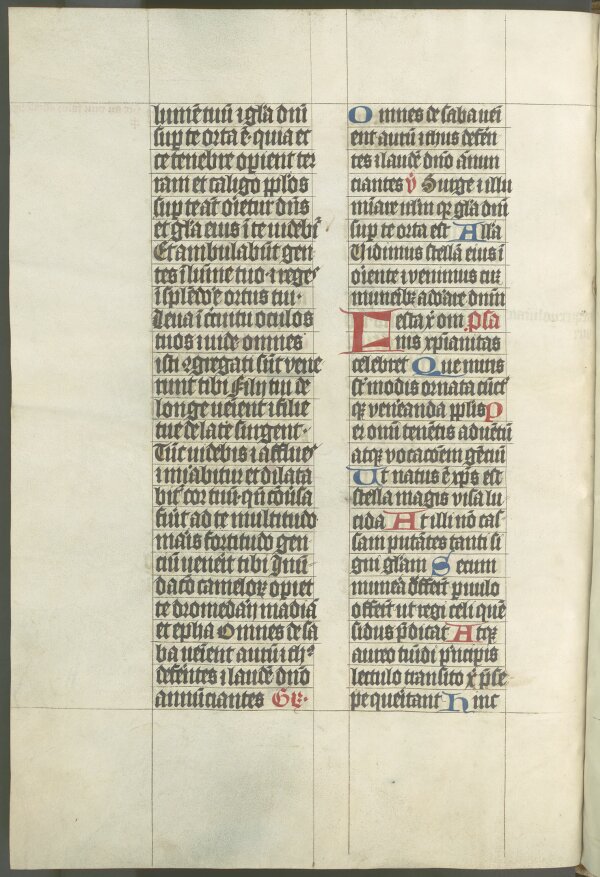 lumē tuū ⁊ gl̄a dn̄i
sup̲ te orta ē· quia et
ce tenebre op̲ient ter
ram et caligo pp̄l̄os
sup̲ te aūt orietur dn̄s
et gl̄a eius ī te uidebiᷓ
Et ambulabūt gen
tes ī lumīe tuo ⁊ reges
ī splēdore ortus tui·
Leua ī circuitu oculos
tuos ⁊ uide omnes
isti ꝯgregati sūt vene
runt tibi Filij tui de
longe ueīent ⁊ filie
tue de late͛ surgent·
Tūc uidebis ⁊ afflues
⁊ mirabitur et dilata
bitᷓ cor tuū· qn̄ cōu͛sa
fu͛it ad te multitudo
maris fortitudo gen
ciū uen͛it tibi Inū
dac̄o cameloꝝ op̲iet
te dromedarij madiā
et epha Omnes de sa
ba ueīent aurū ⁊ thꝰ
defe͛ntes ⁊ laudē dn̄o
annūciantes Gr̄·
Omnes de saba ueni
ent aurū ⁊ thus defe͛n
tes ⁊ laudē dn̄o ānun
ciantes v̄ Surge ⁊ illu
mīare ih͛lm qꝛ gl̄a dn̄i
sup̲ te orta est Alla
Vidimus stellā eius ī
oriente ⁊ venimus cū
muneribꝫ adorare dn̄m
Festa xp̄i om̄ Psa
nis xp̄ianitas
celebret Que miris
sūt modis ornata cūct͛
qꝫ ven͛eanda pp̄lis P
er om̄iū tenētis aduētū
atqꝫ vocac̄oem gēciū
Ut natus ē xp̄s est
stella magis visa lu
cida At illi nō cas
sam putātes tanti si
gni gl̄am Secum
mun͛ea d͛fe͛rēt p̲uulo
offe͛rēt ut regi celi quē
sidus p̄dicat Atqꝫ
aureo tūidi p̄ncipis
lectulo transito xp̄i p̄se
pe queritant Hinc